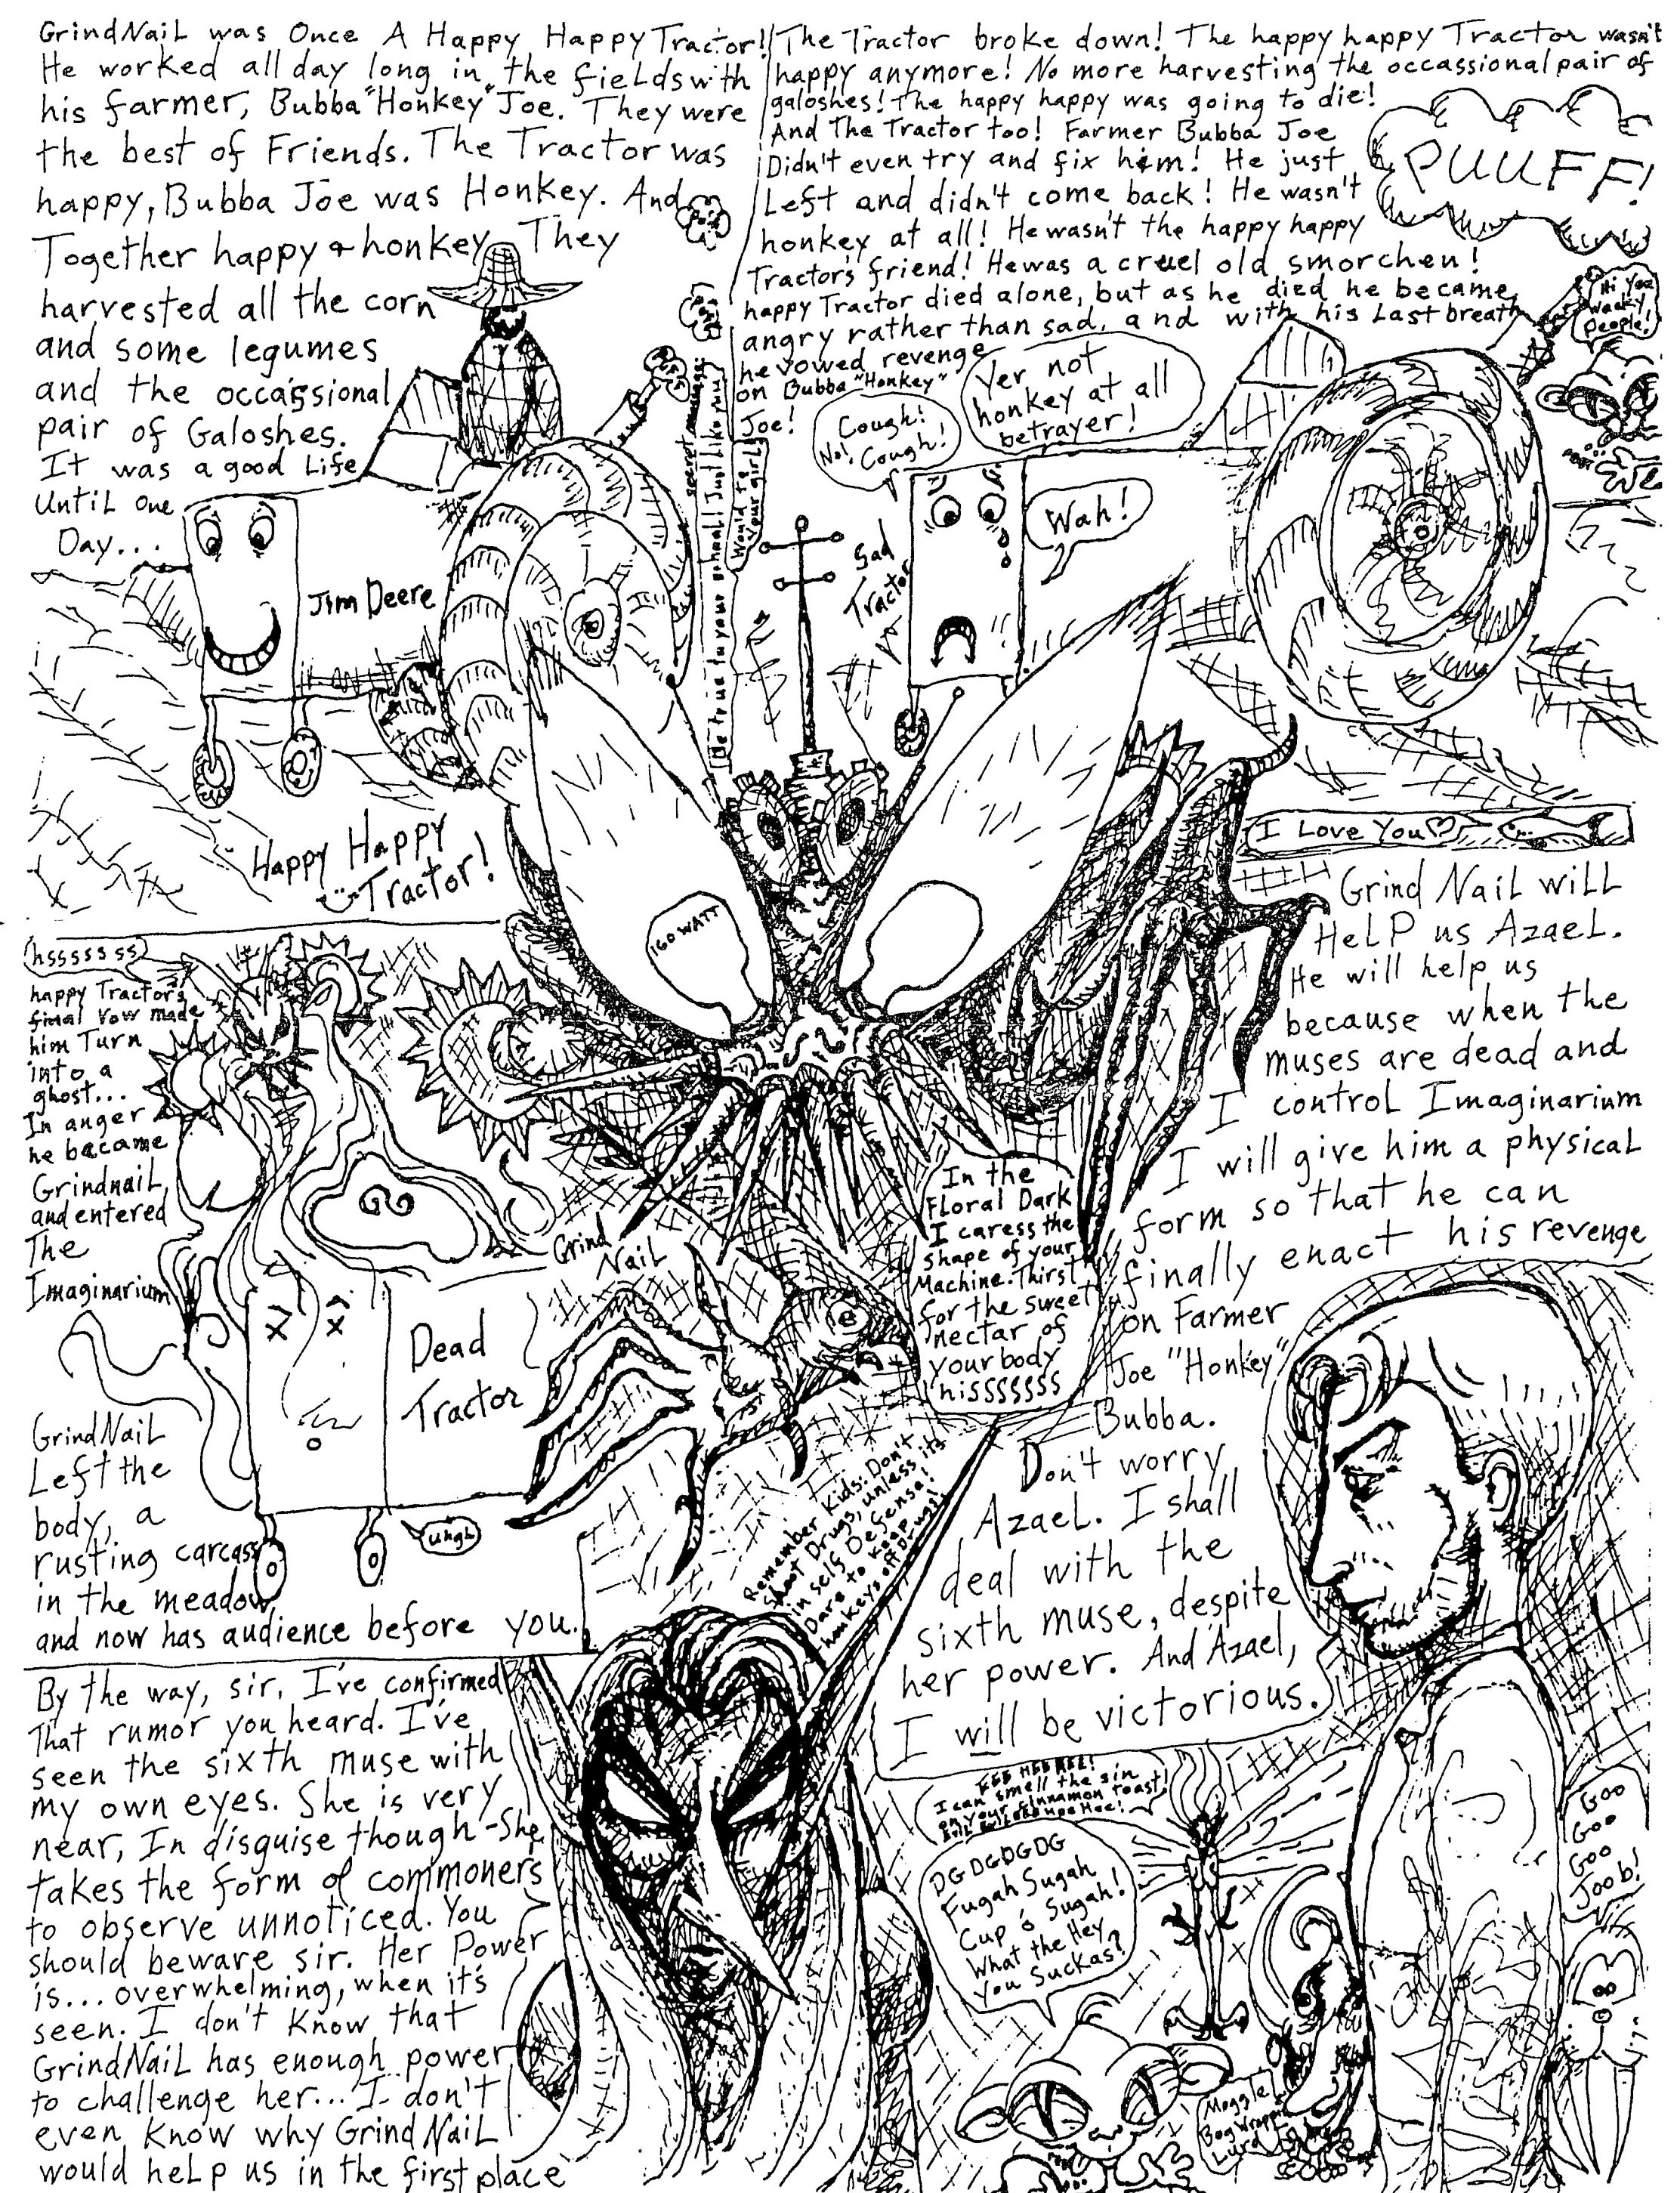 GrindNail was Once A Happy, Happy Tractor!
He worked all day long in the fields with
his farmer, Bubba "Honkey" Joe. They were
the best of Friends. The Tractor was
happy, Bubba Joe was Honkey. And
Together happy + honkey They
harvested all the corn
and some legumes
and the occassional
pair of Galoshes.
It was a good Life
Until One
Day...
Jim Deere
Happy Happy
Tractor!
The Tractor broke down! The happy happy Tractor wasn't
happy anymore! No more harvesting the occassional pair of
galoshes! The happy happy was going to die!
And The Tractor too! Farmer Bubba Joe
Didn't even try and fix him! He just
Left and didn't come back! He wasn't
honkey at all! He wasn't the happy happy
Tractor's friend! He was a cruel old smorchen!
happy Tractor died alone, but as he died he became
angry rather than sad, and with his Last breath
he vowed revenge
on Bubba "Honkey"
Joe!
PUUUFF!
Hi You
Wacky
People!
Cough!
No! Cough!
Yer not
honkey at all
betrayer!
Wah!
Sad
Tractor
secret message:
Be true to your school! Just like you
Would to
Your girl!
I Love You
160 WATT
hssssss
happy Tractor's
final Vow made
him Turn
into a
ghost...
In anger
he became
Grindnail
and entered
The
Imaginarium
Grind
Nail
Dead
Tractor
uhgh
GrindNail
Left the
body, a
rusting carcass
in the meadow,
and now has audience before you.
In the
Floral Dark
I caress the
shape of your
Machine. Thirst
for the sweet
nectar of
your body
hisssssss
Grind Nail will
HeLP us Azael.
He will help us
because when the
muses are dead and
I control Imaginarium
I will give him a physical
form so that he can
finally enact his revenge
on Farmer
Joe "Honkey"
Bubba.
Don't worry
Azael. I shall
deal with the
sixth muse, despite
her power. And Azael,
I will be victorious.
Remember Kids: Don't
Shoot Drugs, unless its
in self Defense!
Dare to keep
honkeys off Drugs!
By the way, sir, I've confirmed
That rumor you heard. I've
seen the sixth muse with
my own eyes. She is very
near, In disguise though - She
takes the form of commoners
to observe unnoticed. You
should beware sir. Her Power
is... overwhelming, when it's
seen. I don't know that
GrindNail has enough power
to challenge her... I don't
even know why GrindNail
would help us in the first place
HEE HEE!
I can smell the sin
on your cinnamon toast!
DGDGDGDG
Fugah Sugah
Cup ó Sugah!
What the Hey
You Suckas?
Goo
Goo
Goo
Joob!
Moggle
Bog
Lurd